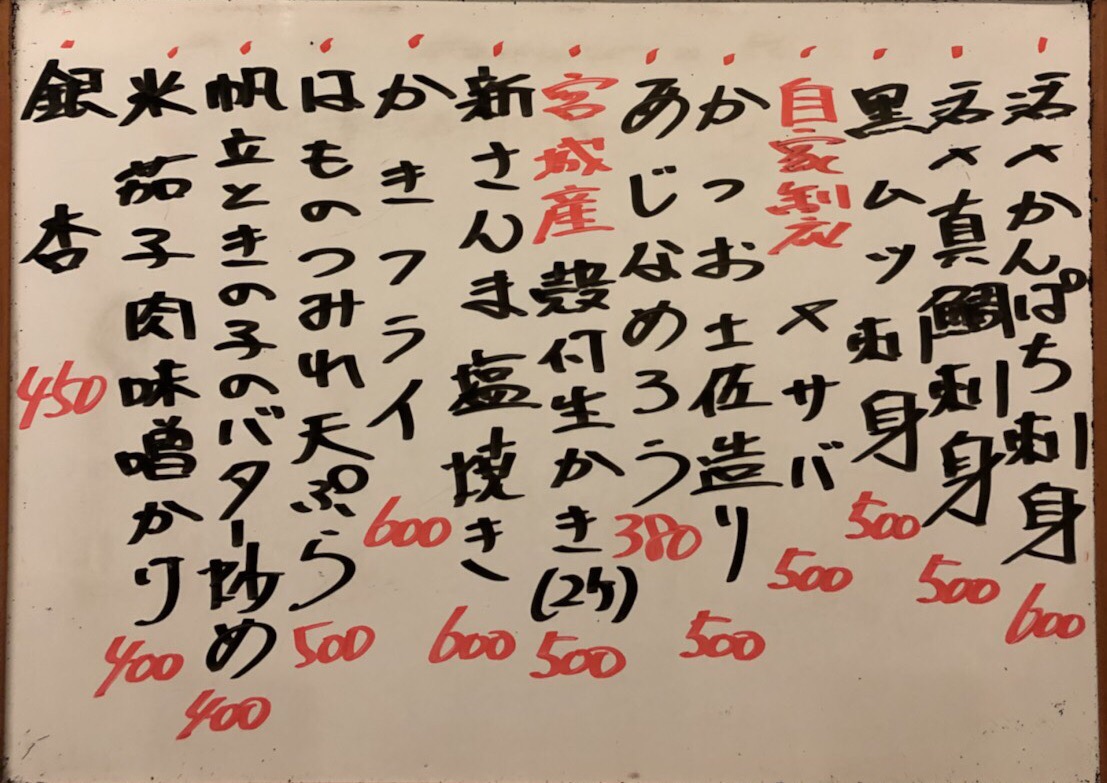 活〆かんぱち刺身 600
活〆真鯛刺身 500
黒ムツ刺身 500
自家製〆サバ 500
かつお土佐造り 500
あじなめろう 380
宮城産殻付生かき(2ケ) 500
新さんま塩焼き 600
かきフライ 600
はものつみれ天ぷら 500
帆立ときの子のバター炒め 400
米茄子肉味噌かけ 400
銀杏 450